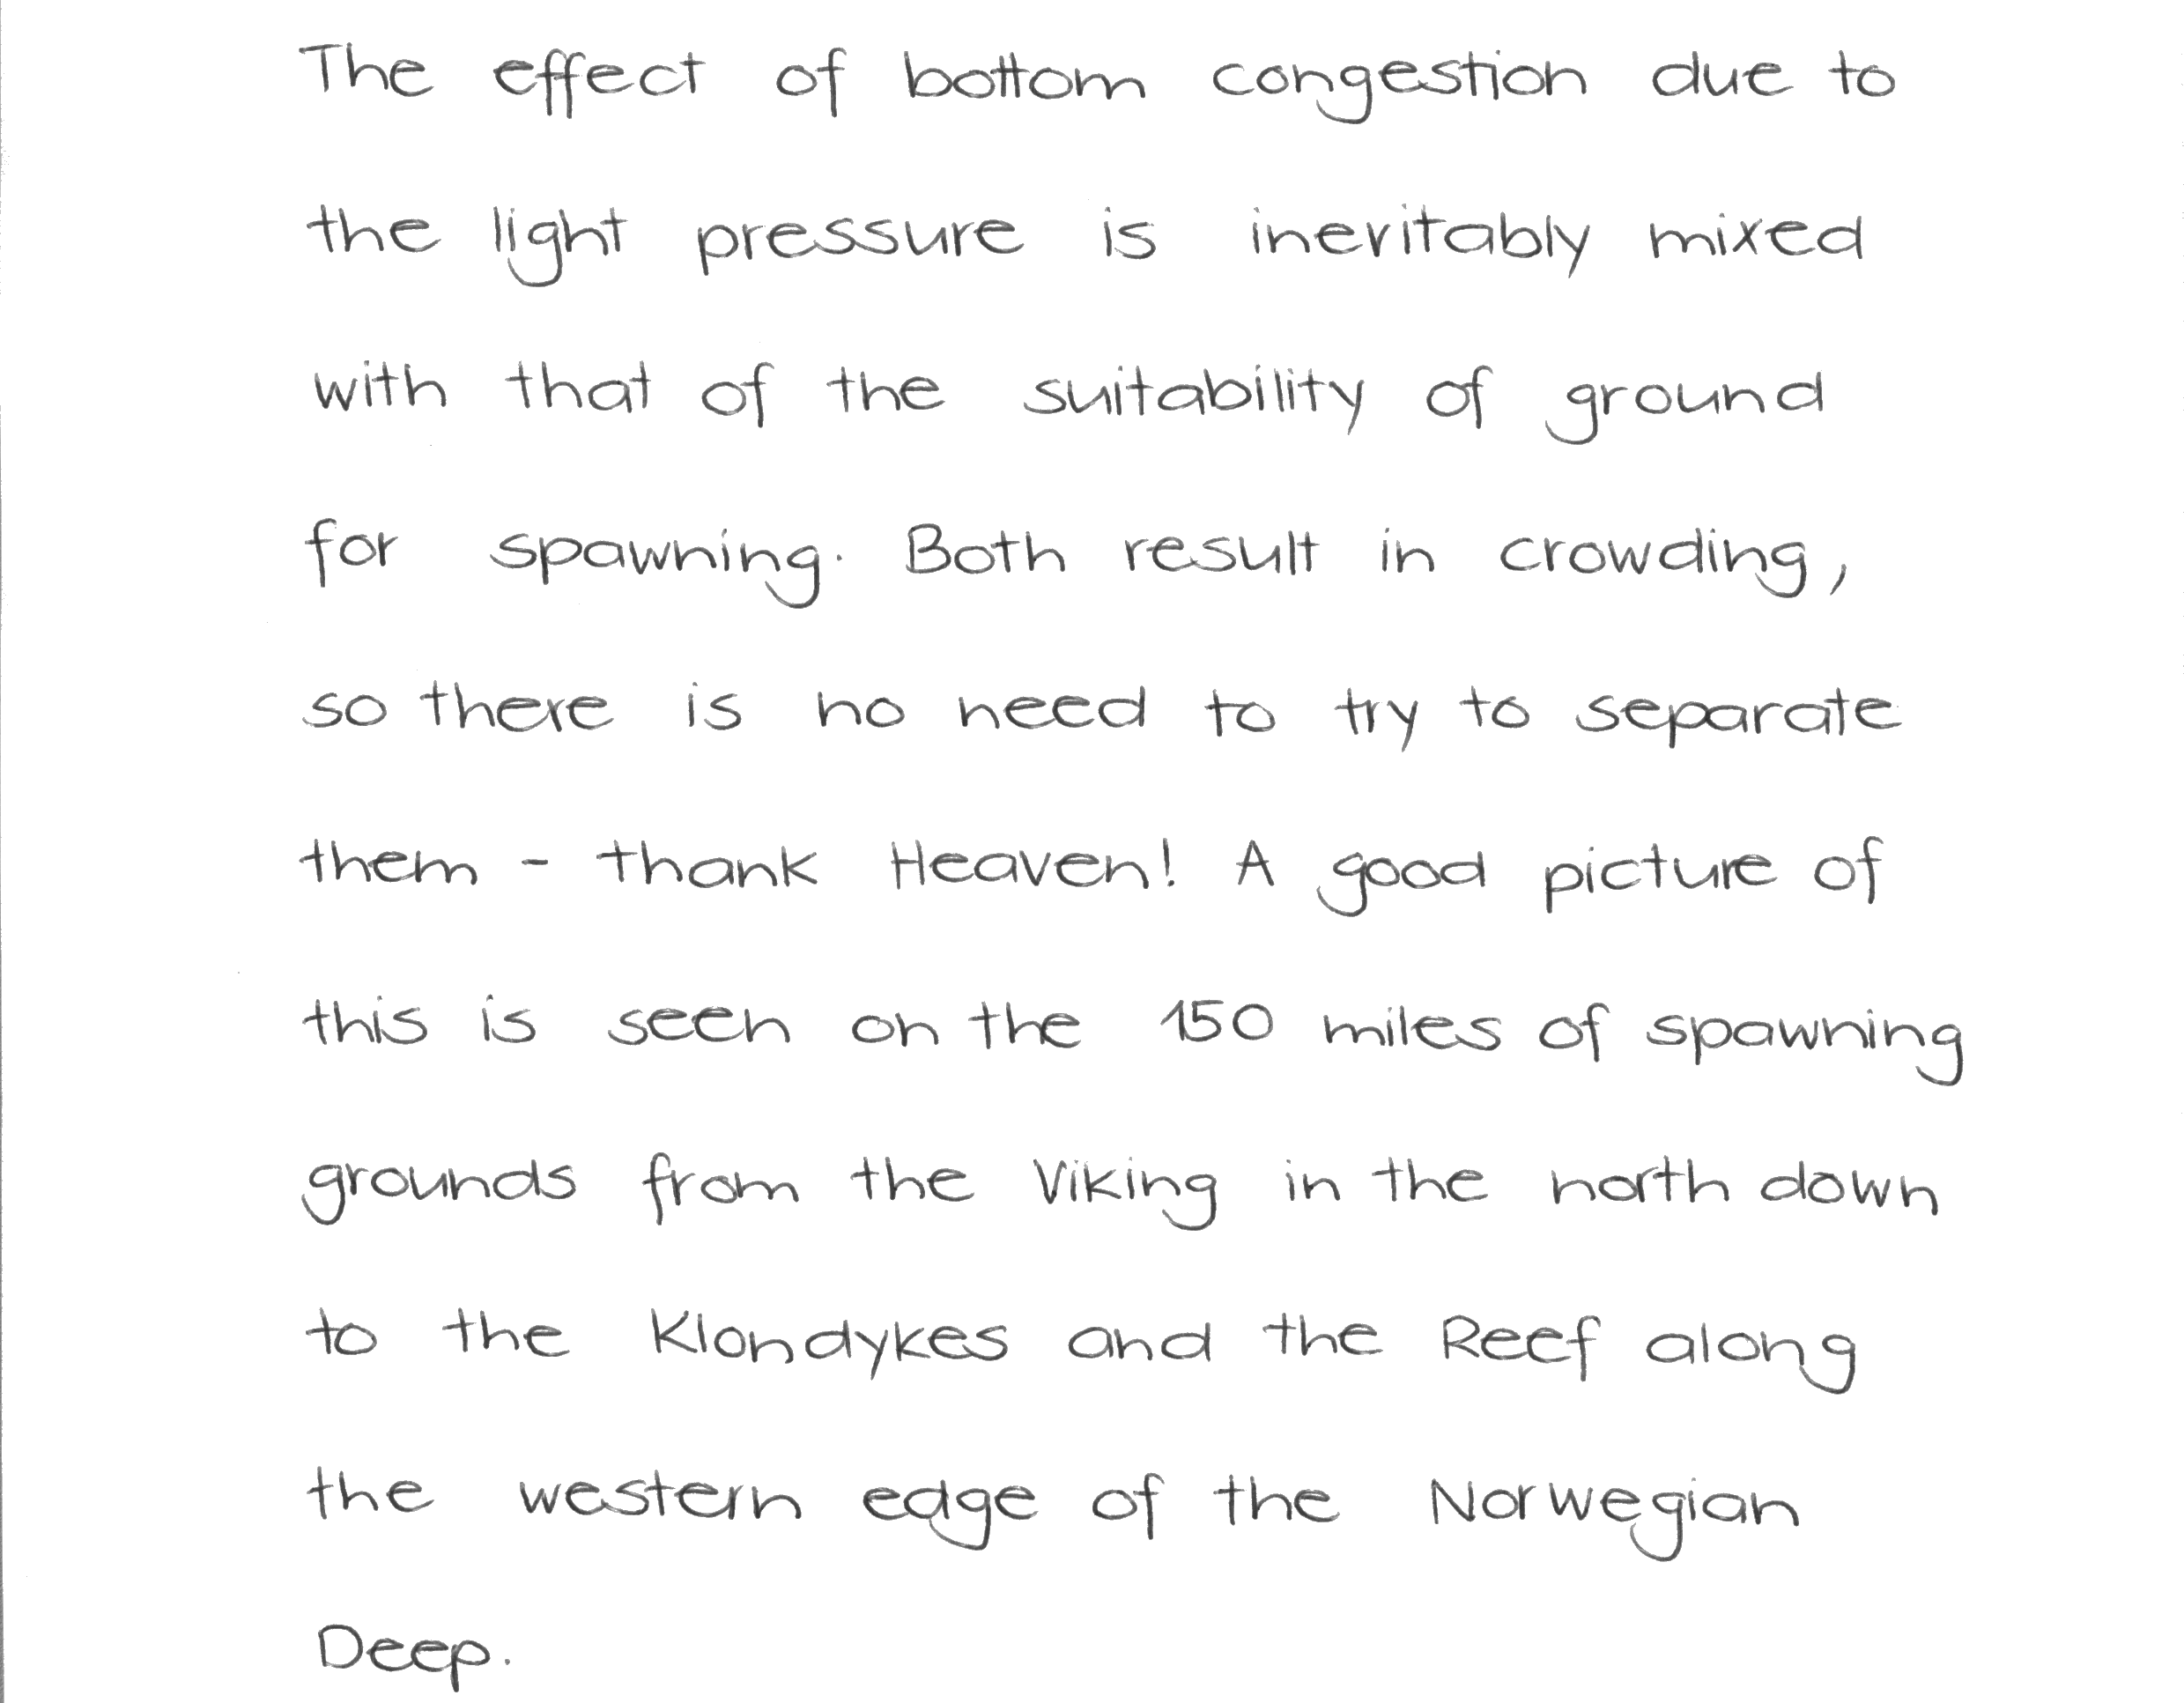 The effect of bottom congestion due to
the light pressure is inevitably mixed
with that of the suitability of ground
for spawning. Both result in crowding,
so there is no need to try to separate
them - thank Heaven! A good picture of
this is seen on the 150 miles of spawning
grounds from the Viking in the north down
to the Klondykes and the Reef along
the western edge of the Norwegian
Deep.